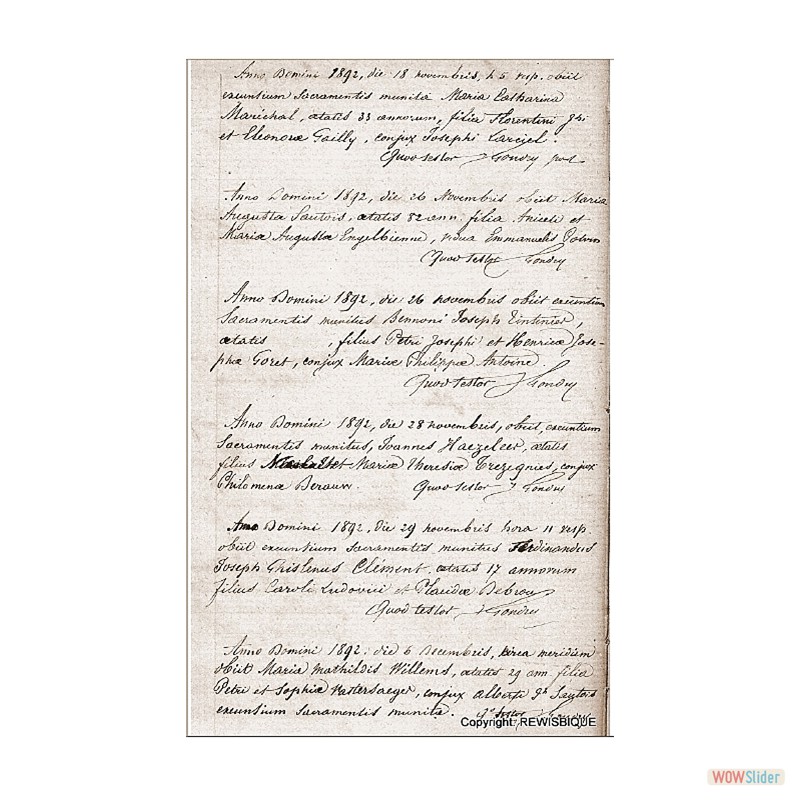 Anno Domini 1892, die 18 novembris, h 5 vesp. obiit
exeuntium Sacramentis munita Maria Catharina
Maréchal, aetatis 33 annorum, filia Florentini
et Eleonorae Gailly, conjux Josephi
Quod testor Gondry
Anno Domini 1892, die 26 Novembris obiit Maria
Augusta Sautois, aetatis 82 ann. filia Aniceti et
Mariae Augustae Engelbienne, vidua Emmanuelis
Quod testor Gondry
Anno Domini 1892, die 26 novembris obiit exeuntium
Sacramentis munitus Bennoni Joseph Tintinier,
aetatis , filius Petri Josephi et Henricae Jose-
phae Goret, conjux Mariae Philippae Antoine.
Quod testor J Gondry
Anno Domini 1892, die 28 novembris, obiit, exeuntium
Sacramentis munitus, Joannes Haezeleer, aetatis
filius et Mariae Theresiae Trezegnies, conjux
Philomenae
Quod testor J Gondry
Anno Domini 1892, die 29 novembris hora 11 vesp.
obiit exeuntium Sacramentis munitus Ferdinandus
Joseph Ghislenus Clément. aetatis 17 annorum
filius Caroli Ludovici et Placidae Debroux
Quod testor J Gondry
Anno Domini 1892. die 6 Decembris, circa meridiem
obiit Maria Mathildis Willems, aetatis 29 ann. filia
Petri et Sophiae conjux Alberti Sautois
exeuntium Sacramentis munita. testor
Copyright: REWISBIQUE
WOWSlider